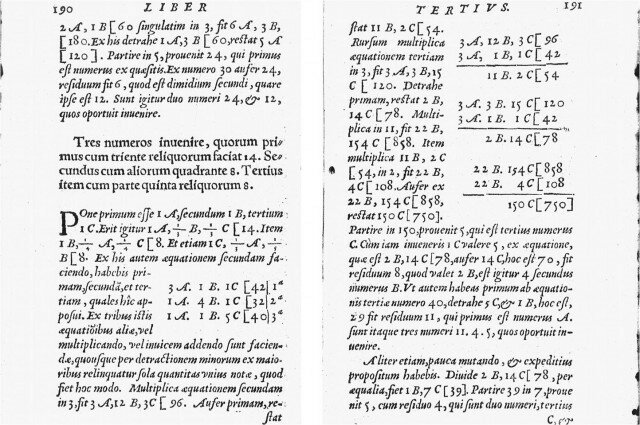 190 LIBER
2 A, 1 B [60 singulatim in 3, fit 6 A, 3 B,
[180. Ex his detrahe 1 A, 3 B [60, restat 5 A
[120]. Partire in 5, prouenit 24, qui primus
est numerus ex quæsitis. Ex numero 30 aufer 24,
residuum fit 6, quod est dimidium secundi, quare
ipse est 12. Sunt igitur duo numeri 24, & 12,
quos oportuit inuenire.
Tres numeros inuenire, quorum pri-
mus cum triente reliquorum faciat 14. Se-
cundus cum aliorum quadrante 8. Tertius
item cum parte quinta reliquorum 8.
POne primum esse 1 A, secundum 1 B, tertium
1 C. Erit igitur 1 A, B, C [14. Item
1 B, A, C [8. Et etiam 1 C, A,
B [8. Ex his autem æquationem secundam fa-
ciendo, habebis pri-
mam, secundã, et ter-
tiam, quales hîc ap-
posui. Ex tribus istis
æquatiōibus aliæ, vel
3 A. 1 B. 1 C [42| 1ª
1 A. 4 B. 1 C [32| 2ª
1 A. 1 B. 5 C [40| 3ª
multiplicando, vel inuicem addendo sunt facien-
dæ, quousque per detractionem minorum ex maio-
ribus relinquatur sola quantitas vnius notæ, quod
fiet hoc modo. Multiplica æquationem secundam
in 3, fit 3 A, 12 B, 3 C [96. Aufer primam, re-
stat
TERTIVS. 191
stat 11 B, 2 C [54.
Rursum multiplica
æquationem tertiam
in 3, fit 3 A, 3 B, 15
C [120. Detrahe
primam, restat 2 B,
14 C [78. Multi-
plica in 11, fit 22 B,
154 C [858. Item
multiplica 11 B, 2 C
[54, in 2, fit 22 B,
4 C [108. Aufer ex
22 B, 154 C [858,
restat 150 C [750].
3 A. 12 B, 3 C [96
3 A, 1 B, 1 C [42
11 B. 2 C [54
3 A. 3 B. 15 C [120
3 A. 1 B. 1 C [42
2 B. 14 C [78
22 B. 154 C [858
22 B. 4 C [108
150 C [750]
Partire in 150, prouenit 5, qui est tertius numerus
C. Cùm iam inueneris 1 C valere 5, ex æquatione,
quæ est 2 B, 14 C [78, aufer 14 C, hoc est 70, fit
residuum 8, quod valet 2 B, est igitur 4 secundus
numerus B. Vt autem habeas primum ab æquatio-
nis tertiæ numero 40, detrahe 5 C, & 1 B, hoc est,
29 fit residuum 11, qui primus est numerus A.
sunt itaque tres numeri 11. 4. 5, quos oportuit in-
uenire.
Aliter etiam, pauca mutando, & expeditius
propositum habebis. Diuide 2 B, 14 C [78, per
æqualia, fiet 1 B, 7 C [39]. Partire 39 in 7, proue
nit 5, cum residuo 4, qui sunt duo numeri, tertius